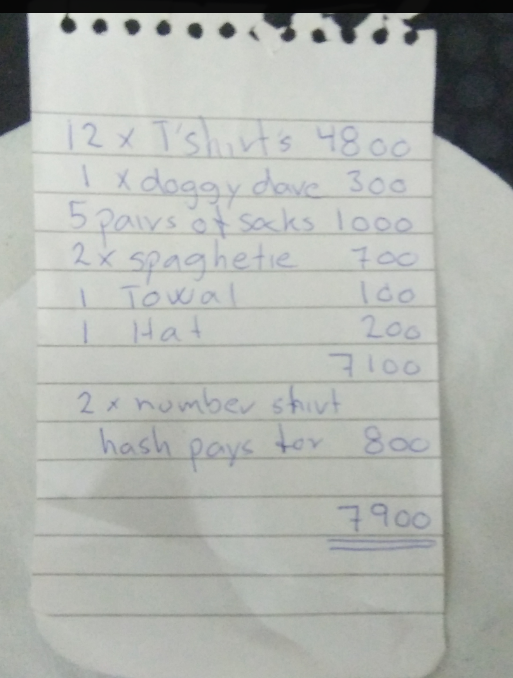 12 x T'shirt's 4800
1 x doggy dave 300
5 pairs of socks 1000
2 x spaghetie 700
1 Towal 100
1 Hat 200
7100
2 x number shirt
hash pays for 800
7900